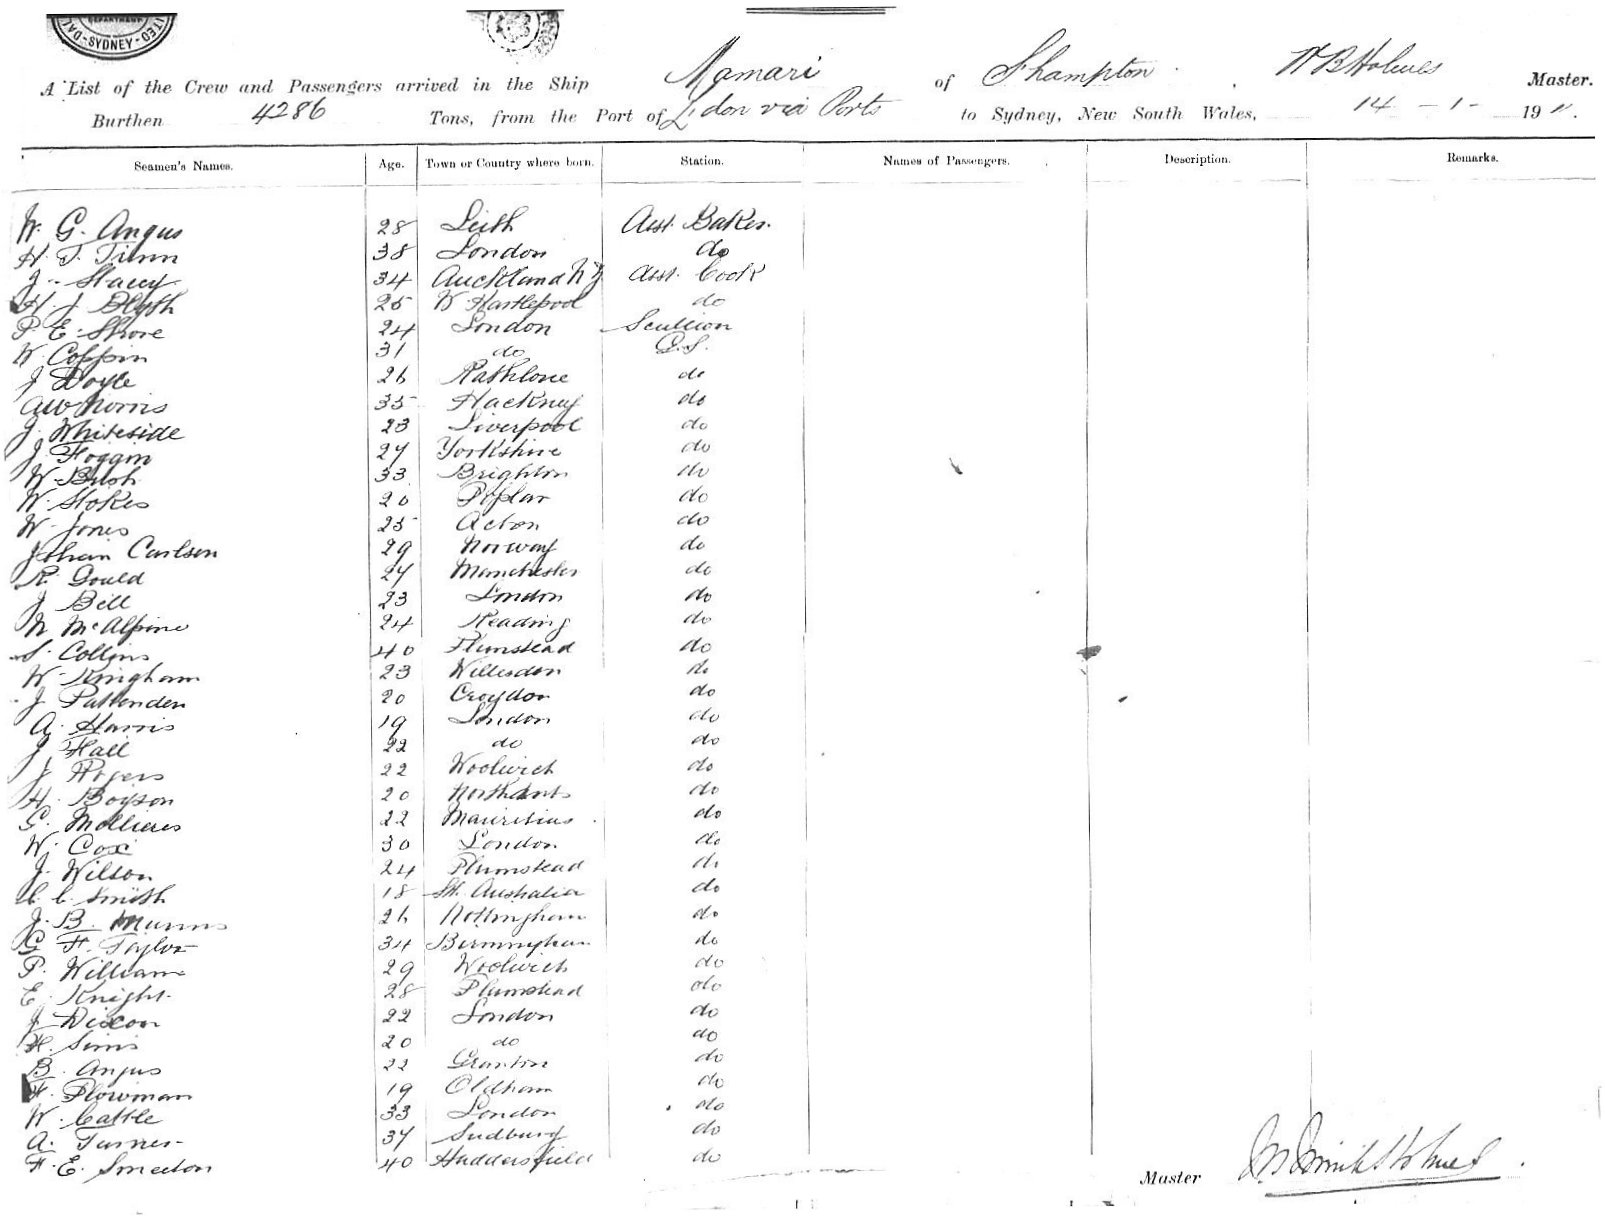 DEPARTMENT
SYDNEY
A List of the Crew and Passengers arrived in the Ship Mamari of S'hampton W B Holmes Master.
Burthen 4286 Tons, from the Port of L'don via Ports to Sydney, New South Wales, 14 - 1 - 1911.
Seamen's Names. Age. Town or Country where born. Station. Names of Passengers. Description. Remarks.
W. G. Angus 28 Leith Asst. Baker.
H. T. Timm 38 London do
J. Stacey 34 Auckland N Z Asst. Cook
H. J. Blyth 25 W Hartlepool do
P. E. Shore 24 London Scullion
W. Coppin 31 do G.S.
J Doyle 26 do
A W Norris 35 Hackney do
J. Whiteside 23 Liverpool do
J. Hogam 24 Yorkshire do
W. Bush 33 Brighton do
W. Stokes 20 Poplar do
W. Jones 25 Acton do
Johan Carlsen 29 Norway do
R. Gould 24 Manchester do
J. Bill 23 London do
N McAlpine 24 Reading do
S. Collins 40 Plumstead do
W. Kingham 23 Willesden do
J Pattenden 20 Croydon do
A. Harris 19 London do
J Hall 22 do do
J Rogers 22 Woolwich do
H. Boyson 20 Northants do
G. Mollieres 22 Mauritius do
W. Cox 30 London do
J. Wilson 24 Plumstead do
C. C. Smith 18 Sth. Australia do
J. B. Munns 26 Nottingham do
G. H. Taylor 34 Birmingham do
P. William 29 Woolwich do
E. Knight 28 Plumstead do
J Dixon 22 London do
H. Sims 20 do do
B. Angus 22 Granton do
F. Plowman 19 Oldham do
W. Cattle 33 London do
A. Turner 34 Sudbury do
F. E. Smeeton 40 Huddersfield do
Master Holmes